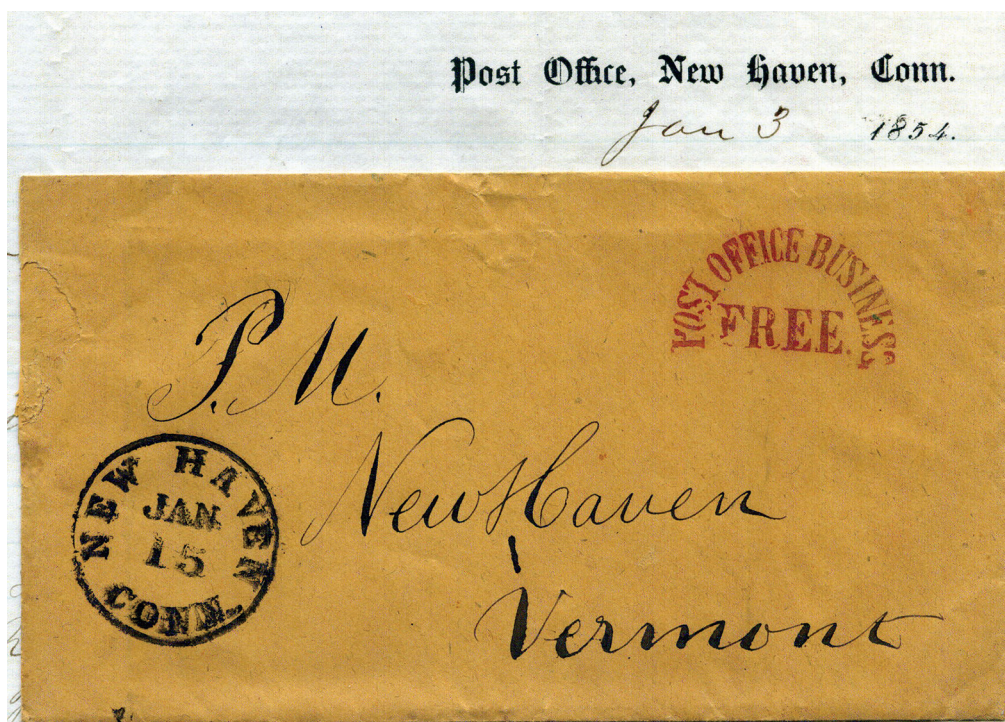 Post Office, New Haven, Conn.
Jan 3 1854.
POST OFFICE BUSINESS
FREE.
P. M.
New Haven
Vermont
NEW HAVEN
JAN
15
CONN.